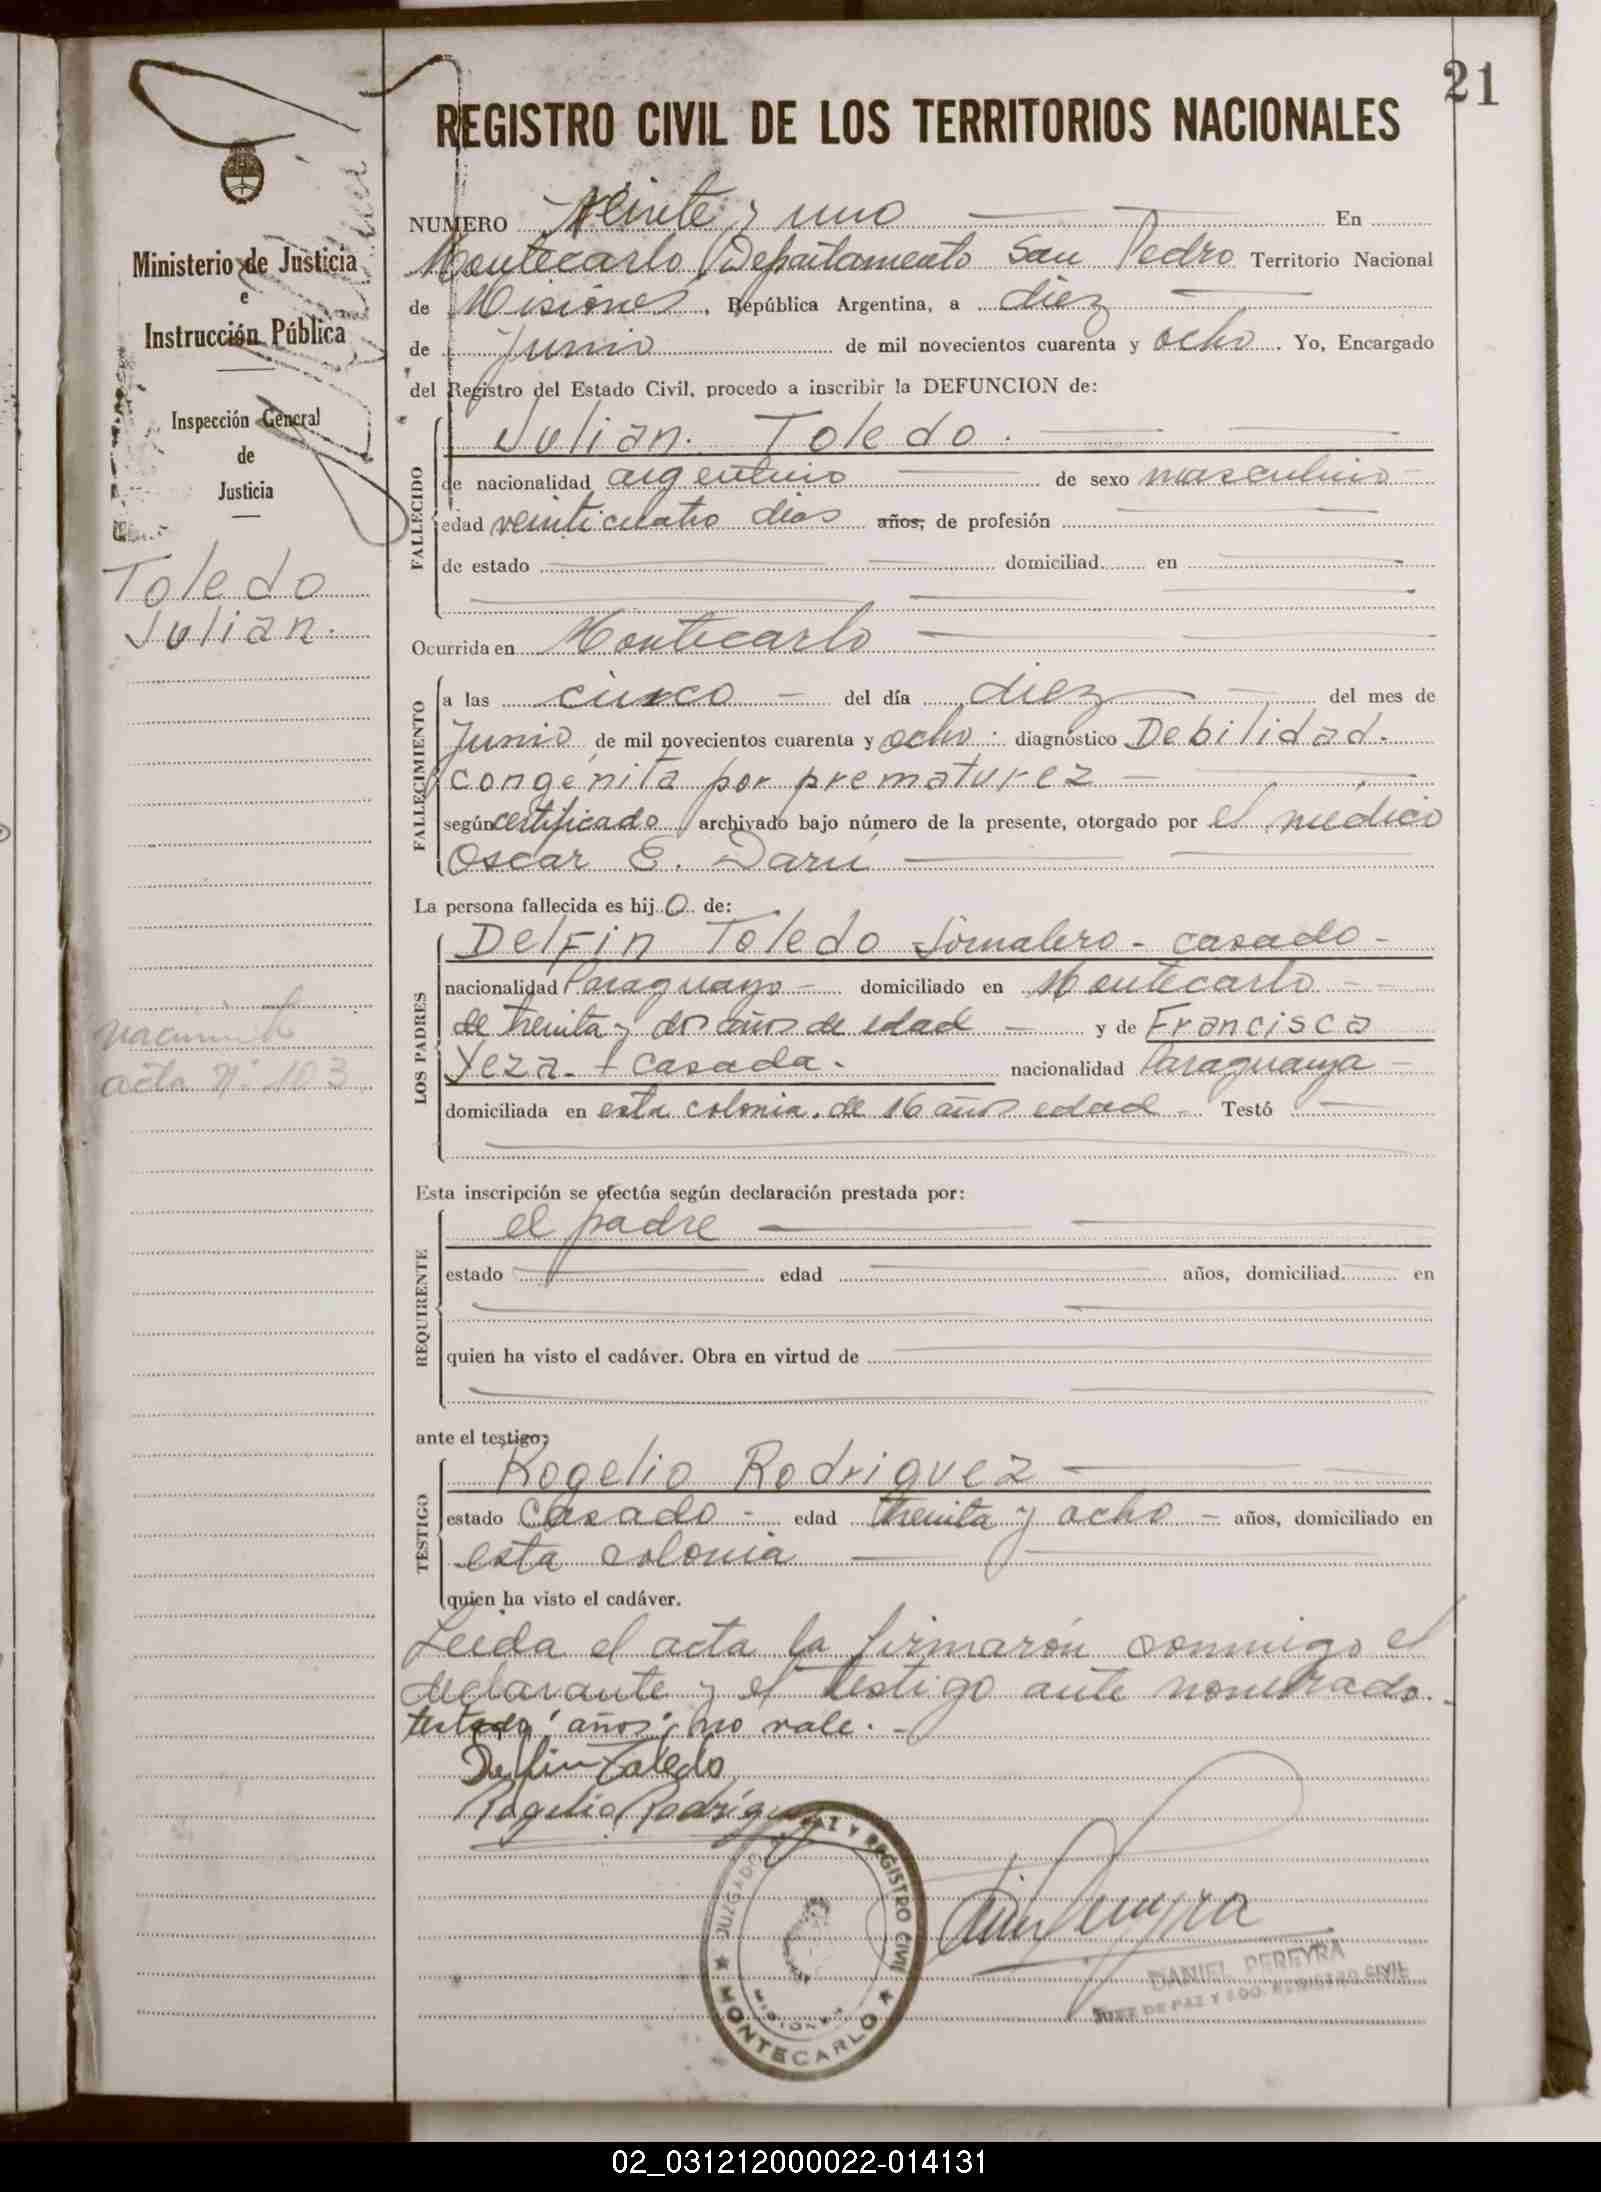 21
REGISTRO CIVIL DE LOS TERRITORIOS NACIONALES
Ministerio de Justicia
e
Instrucción Pública
Inspección General
de
Justicia
Toledo
Julian.
nacimiento
acta nº 103
NUMERO Veinte y uno En
Montecarlo Departamento San Pedro Territorio Nacional
de Misiones, República Argentina, a diez
de Junio de mil novecientos cuarenta y ocho. Yo, Encargado
del Registro del Estado Civil, procedo a inscribir la DEFUNCION de:
FALLECIDO
Julian. Toledo.
de nacionalidad argentino de sexo masculino
edad veinticuatro dias años, de profesión
de estado domiciliad en
Ocurrida en Montecarlo
FALLECIMIENTO
a las cinco del día diez del mes de
Junio de mil novecientos cuarenta y ocho: diagnóstico Debilidad.
congénita por prematurez
según certificado archivado bajo número de la presente, otorgado por el médico
Oscar E. Darú
La persona fallecida es hijo de:
LOS PADRES
Delfin Toledo Jornalero - casado -
nacionalidad Paraguayo - domiciliado en Montecarlo
de treinta y dos años de edad y de Francisca
Yeza - casada. nacionalidad Paraguaya
domiciliada en esta colonia. de 16 años edad Testó
Esta inscripción se efectúa según declaración prestada por:
REQUIRENTE
el padre
estado edad años, domiciliad en
quien ha visto el cadáver. Obra en virtud de
ante el testigo:
TESTIGO
Rogelio Rodriguez
estado Casado - edad treinta y ocho - años, domiciliado en
esta colonia
quien ha visto el cadáver.
Leida el acta la firmarón conmigo el
declarante y el testigo ante nombrado.
testado "años", no vale.
Delfin Toledo
Rogelio Rodríguez
JUZGADO DE PAZ Y REGISTRO CIVIL
MISIONES
MONTECARLO
DANIEL PEREYRA
JUEZ DE PAZ Y EDO. REGISTRO CIVIL
02_031212000022-014131